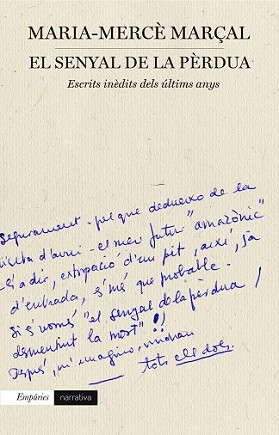 MARIA-MERCÈ MARÇAL
EL SENYAL DE LA PÈRDUA
Escrits inèdits dels últims anys
segurament -pel que dedueixo de la
visita d'avui- el meu futur "amazònic"
-És a dir, extirpació d'un pit, així, ja
d'entrada, és més que probable.
Si és només "el senyal de la pèrdua /
desmentint la mort"!!
Després, m'imagino, vindran
tots els dols.
Empúries
narrativa